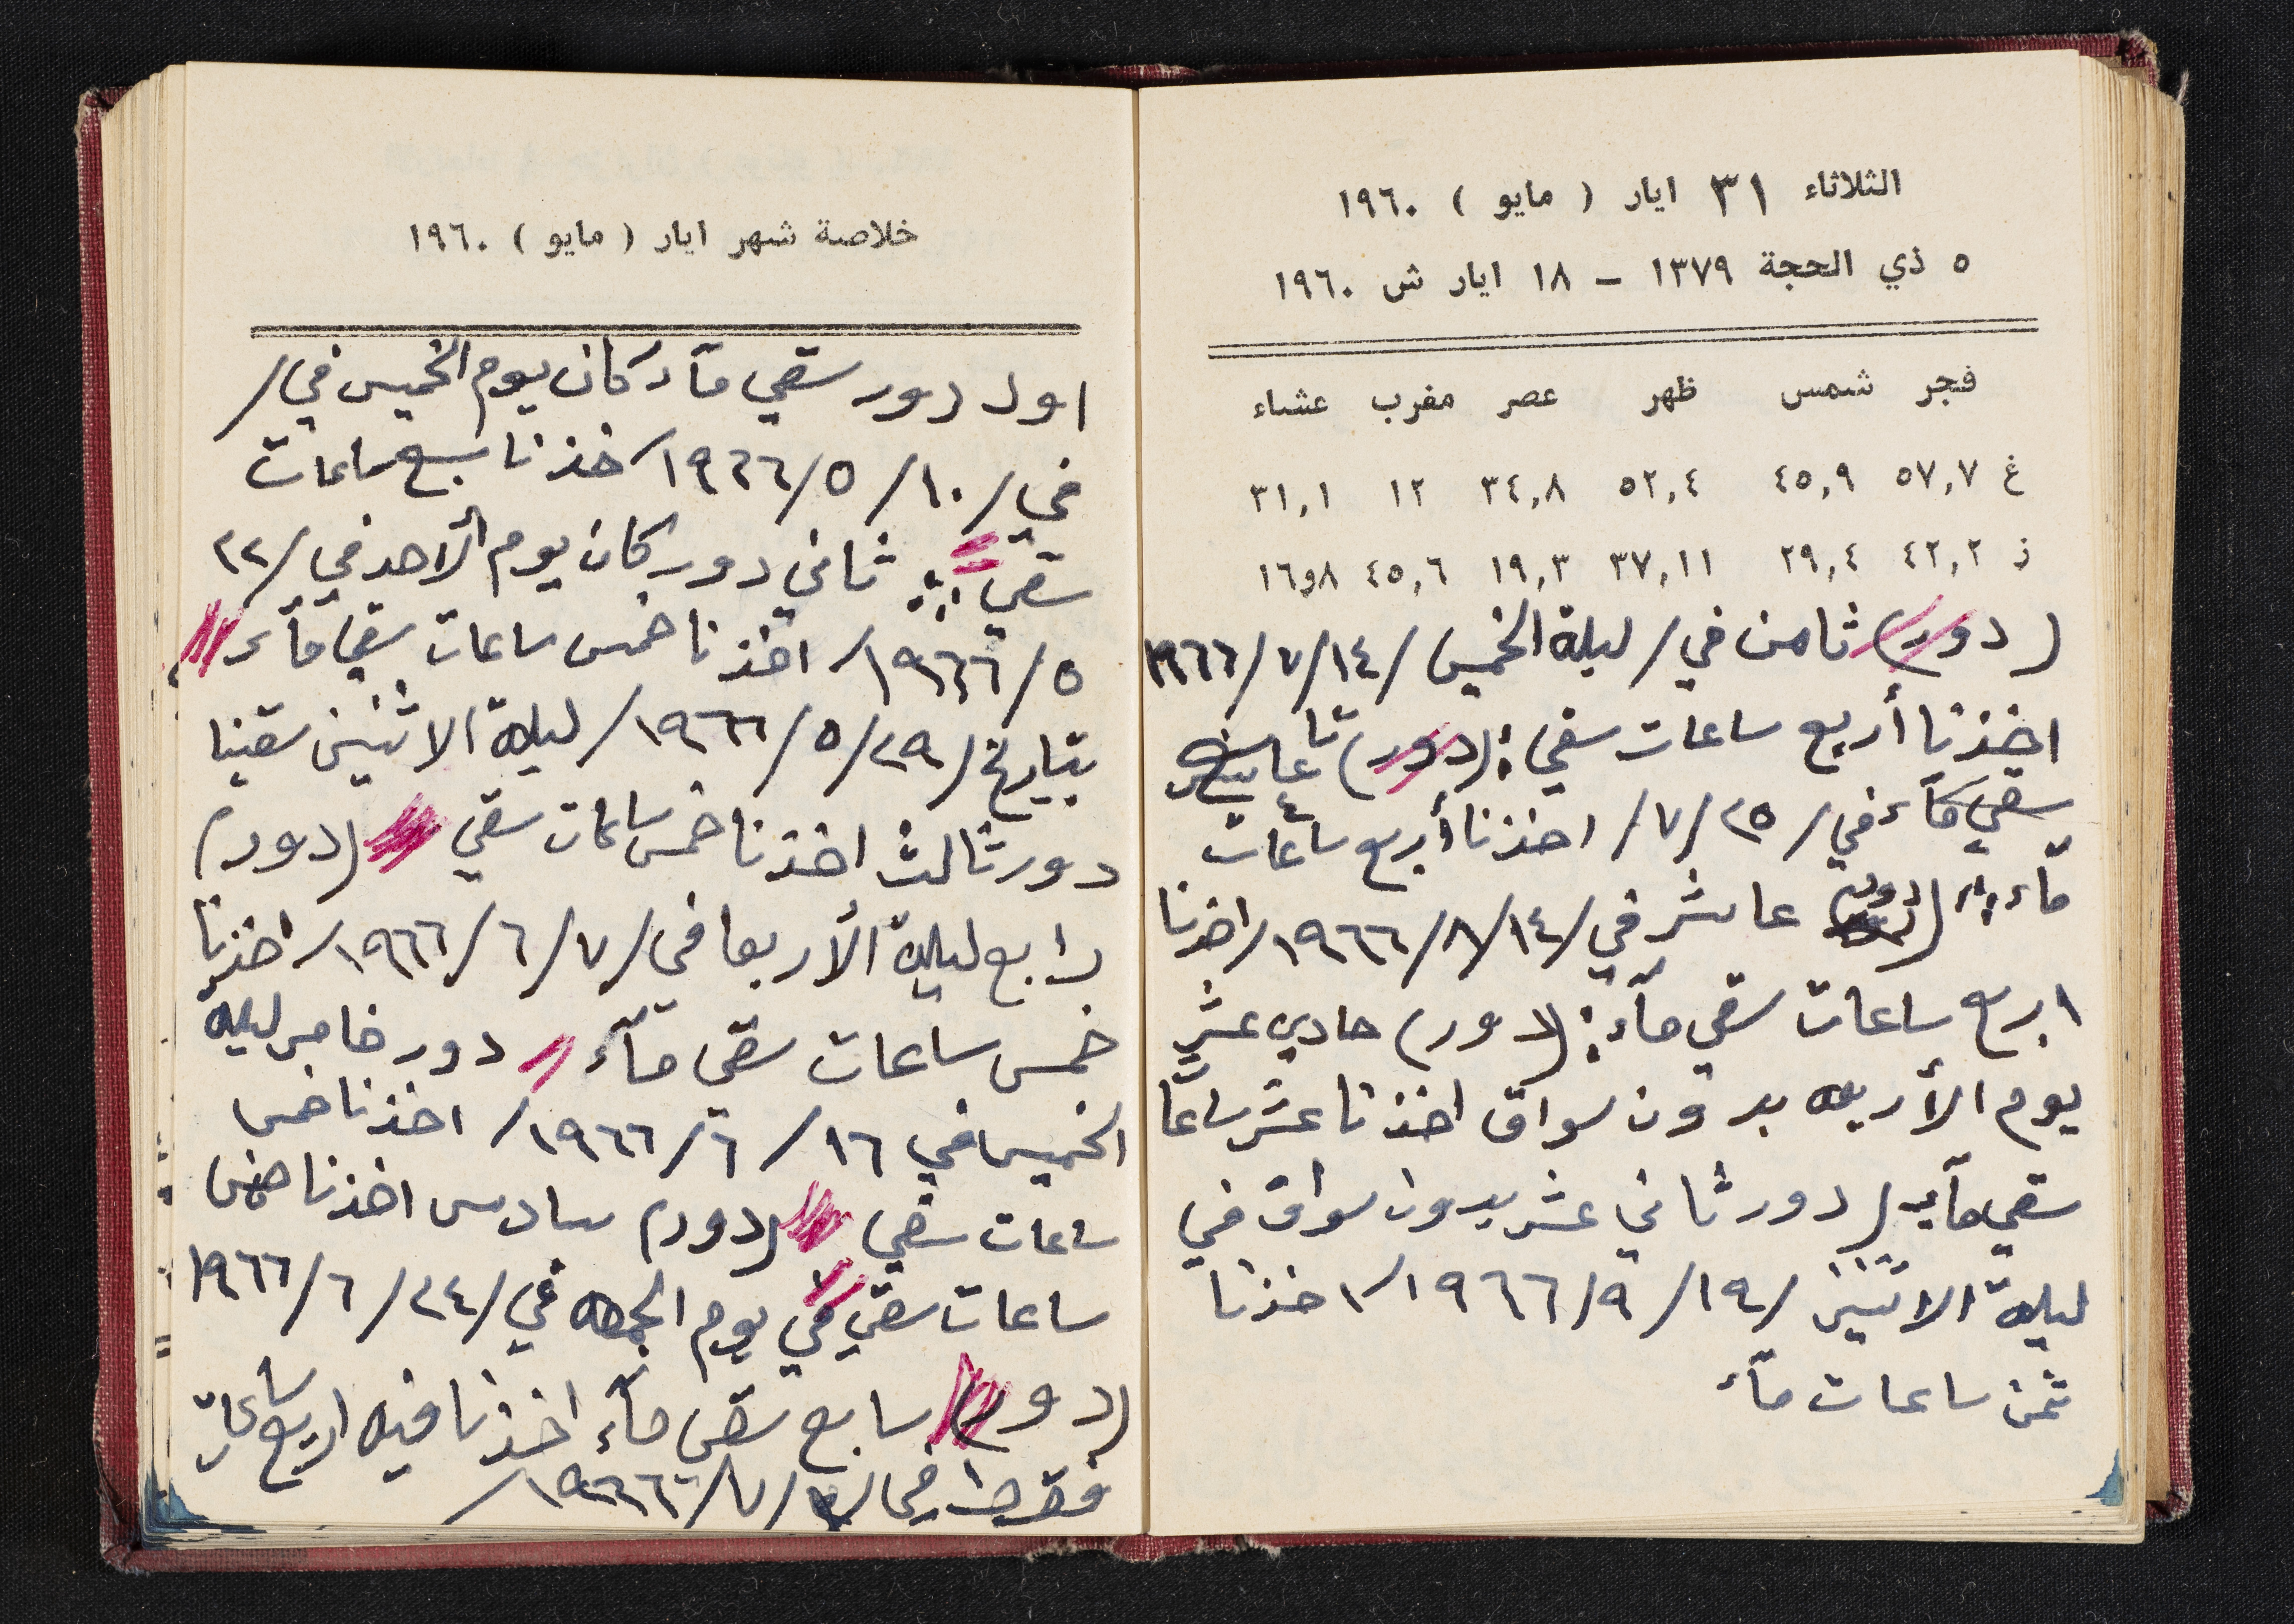 الثلاثاء ٣١ ايار ( مايو ) ١٩٦٠
٥ ذي الحجة ١٣٧٩ – ١٨ ايار ش ١٩٦٠
فجر شمس ظهر عصر مغرب عشاء
غ ٥٧,٧ ٤٥,٩ ٥٢,٤ ٣٤,٨ ١٢ ٣١,١
ز ٤٢,٢ ٢٩,٤ ٣٧,١١ ١٩,٣ ٤٥,٦ ١٦و٨
(دور) ثامن في / ليلة الخميس / ١٤/٧/١٩٦٦
اخذنا أربع ساعات سقي : (دور) تاسع
سقي مآء في / ٢٥/٧/ اخذنا أربع ساعات
مآء : (دور) عاشر في / ١٤/٨/١٩٦٦/ اخذنا
اربع ساعات سقي مآء : (دور) حادي عشر
يوم الأربعه بدون سواق اخذنا عشر ساعا
سقي مآء ( دور ثاني عشر بدون سواق في
ليلة الاثنين / ١٩/٩/١٩٦٦/ اخذنا
ثمن ساعات مآء
خلاصة شهر ايار ( مايو ) ١٩٦٠
اول دور سقي مآء كان يوم الخميس في /
في / ١٠/٥/١٩٦٦/ خذنا سبع ساعات
سقي : ثاني دور كان يوم الأحد في / ٢٢
٥/١٩٦٦/ اخذنا خمس ساعات سقي مآء
بتاريخ / ٢٩/٥/١٩٦٦/ ليلة الاثنين سقينا
دور ثالث اخذنا خمس ساعات سقي (دور)
رابع ليلة الأربعا في / ٧/٦/١٩٦٦/ اخذنا
خمس ساعات سقي مآء دور خامس ليلة
الخميس في ١٦/٦/١٩٦٦/ اخذنا خمس
ساعات سقي (دور) سادس اخذنا خمس
ساعات سقي في يوم الجمعه في / ٢٤/٦/١٩٦٦
(دور) سابع سقي مآء اخذنا فيه اربع ساعات
فقط في / /٧/١٩٦٦/